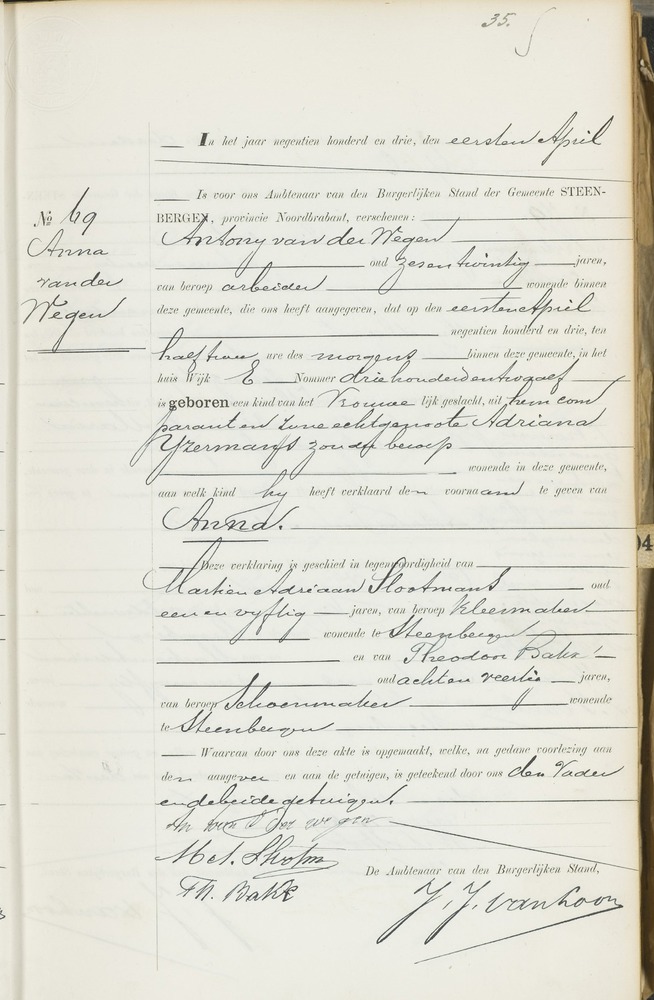 35.
In het jaar negentien honderd en drie, den eersten April
Is voor ons Ambtenaar van den Burgerlijken Stand der Gemeente STEEN-
No 69
BERGEN, provincie Noordbrabant, verschenen:
Anna
van der
Wegen
Antony van der Wegen
oud zesentwintig jaren,
van beroep arbeider wonende binnen
deze gemeente, die ons heeft aangegeven, dat op den eersten April
negentien honderd en drie, ten
half twee ure des morgens binnen deze gemeente, in het
huis Wijk E Nommer driehonderdentwaalf
is geboren een kind van het Vrouwelijk geslacht, uit hem com
parant en zyne echtgenoote Adriana
Yzermans zonder beroep
wonende in deze gemeente,
aan welk kind hy heeft verklaard den voornaam te geven van
Anna.
Deze verklaring is geschied in tegenwoordigheid van
Martien Adriaan Slootmans oud
een en vyftig jaren, van beroep kleermaker
wonende te Steenbergen
en van Theodoor Bakx
oud achten veertig jaren,
van beroep Schoenmaker wonende
te Steenbergen
Waarvan door ons deze akte is opgemaakt, welke, na gedane voorlezing aan
den aangever en aan de getuigen, is geteekend door ons den Vader
en de beide getuigen.
An van der wegen
De Ambtenaar van den Burgerlijken Stand,
Th. Bakx
J. J. van Loon
04